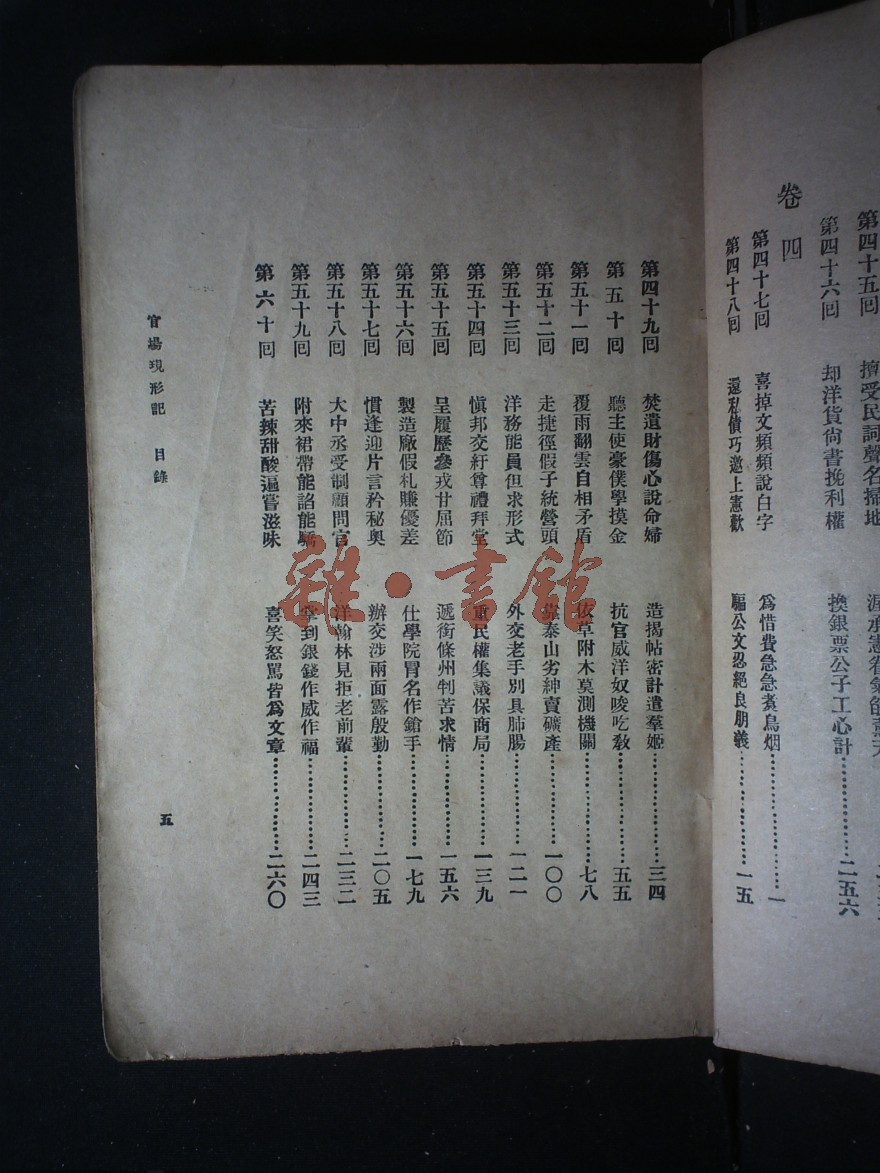 第四十五回 擅受民詞聲名掃地
第四十六回 却洋貨尙書挽利權 換銀票公子工心計 二五六
卷四
第四十七回 喜掉文頻頻說白字 爲惜費急急煮烏烟 一
第四十八回 還私債巧邀上憲歡 騙公文忍絕良朋義 一五
第四十九回 焚遺財傷心說命婦 造揭帖密計遣羣姬 三四
第五十回 聽主使豪僕學摸金 抗官威洋奴唆吃敎 五五
第五十一回 覆雨翻雲自相矛盾 依草附木莫測機關 七八
第五十二回 走捷徑假子統營頭 靠泰山劣紳賣礦產 一〇〇
第五十三回 洋務能員但求形式 外交老手別具肺腸 一二一
第五十四回 愼邦交紆尊禮拜堂 重民權集議保商局 一三九
第五十五回 呈履歷參戎甘屈節 遞銜條州判苦求情 一五六
第五十六回 製造廠假札賺優差 仕學院冒名作鎗手 一七九
第五十七回 慣逢迎片言矜秘奥 辦交涉兩面露殷勤 二〇五
第五十八回 大中丞受制顧問官 洋翰林見拒老前輩 二三二
第五十九回 附來裙帶能諂能驕 掌到銀錢作威作福 二四三
第六十回 苦辣甜酸遍嘗滋味 喜笑怒罵皆爲文章 二六〇
官場現形記 目錄
五
雜·書館